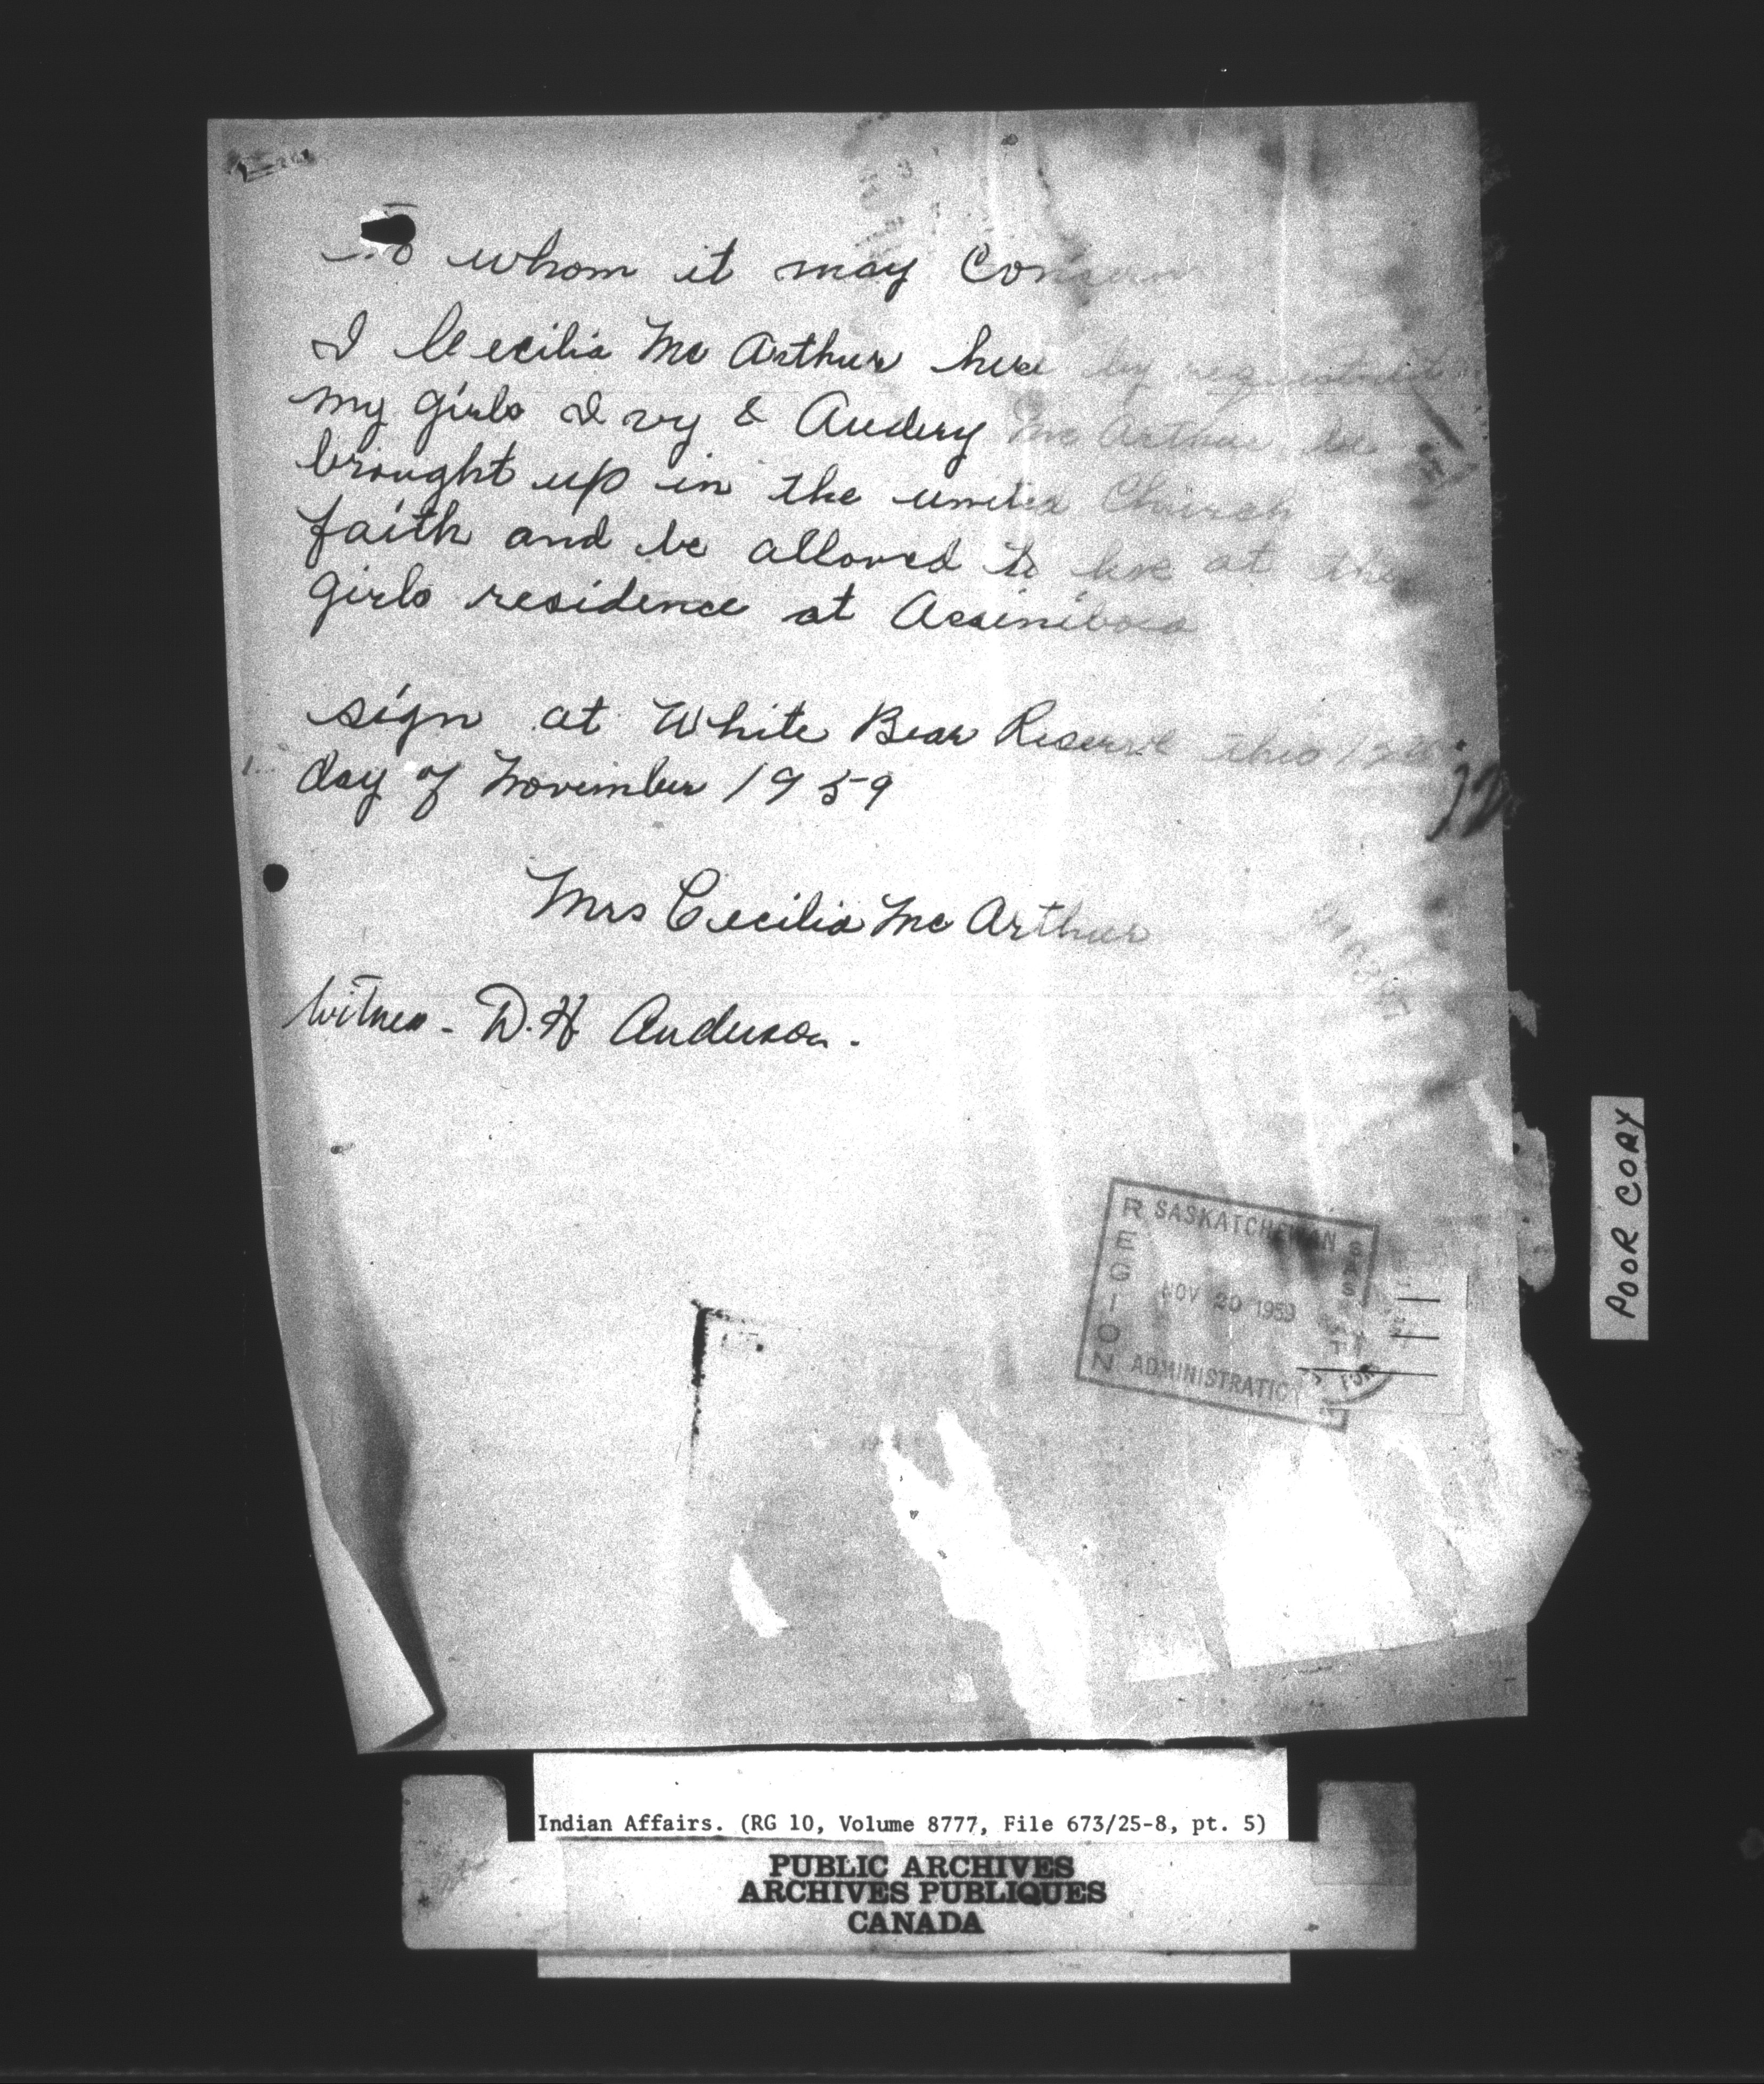 To whom it may Concern
I Cecilia Mc Arthur here by request that
my girls Ivy & Audery Mc Arthur be
brought up in the united Church
faith and be allowed to live at the
girls residence at Assiniboia
sign at White Bear Reserve this 12th
day of November 1959
Mrs Cecilia Mc Arthur
Witness - D.H Anderson.
REGION
SASKATCHEWAN
NOV 20 1959
ADMINISTRATION
POOR COPY
Indian Affairs. (RG 10, Volume 8777, File 673/25-8, pt. 5)
PUBLIC ARCHIVES
ARCHIVES PUBLIQUES
CANADA